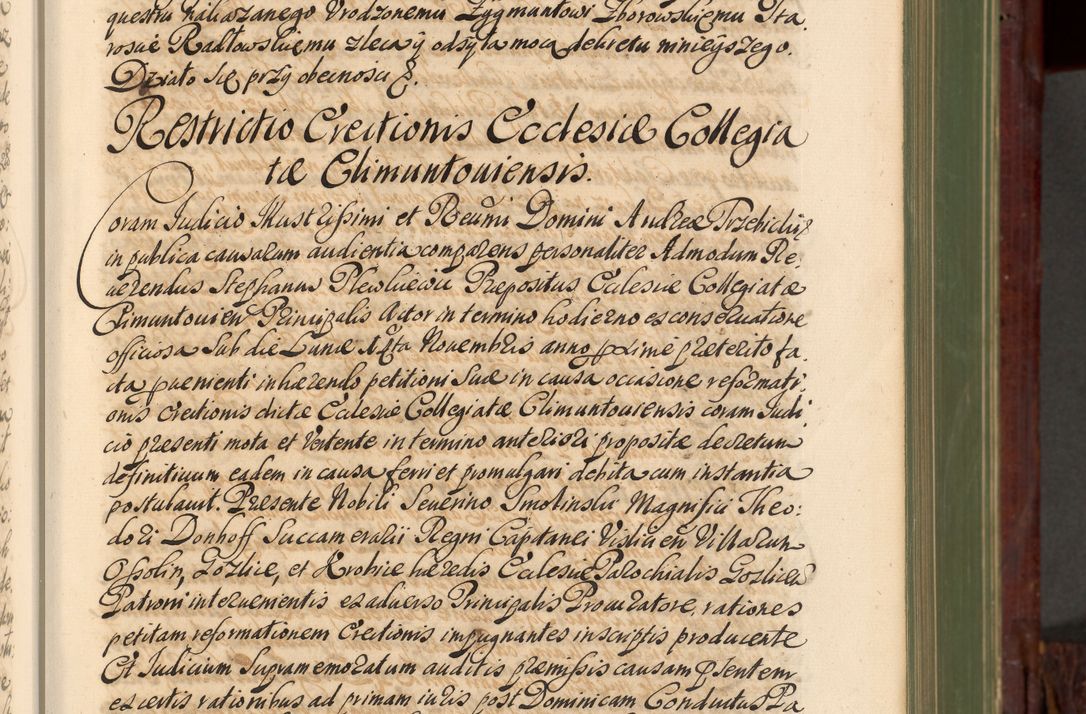 questu haliazanego Urodzonemu Zygmuntowi Zborowskiemu Sta
roscie Radłowskiemu zleca ÿ odsyła mocą dekretu ninieÿszego.
Działo się przy obecnosci &.
Restrictio Erectionis Ecclesiæ Collegia
tæ Climuntoviensis.
Coram Judicio Illustrissimi et Reverendissimi Domini Andreæ Trzebicki &
in publica causarum audientia comparens personaliter Admodum Re-
verendus Stephanus Præpositus Ecclesiæ Collegiatæ
Climuntovien Principalis Actor in termino hodierno ex conservatione
officiosa sub die Lunæ Novembris anno pxime præterito fa-
cta pvenienti inhærendo petitioni suæ in causa occasione reformati-
onis erectionis dictæ Ecclesiæ Collegiatæ Climuntoviensis coram Judi-
cio præsenti mota et vertente in termino anteriori proposítæ decretum
definitivum eadem in causa ferri et promulgari debita cum instantia
postulavit. Præsente Nobili Severino Smolinski Magnifici Theo:
dori Donhoff Succamerarii Regni Capitanei Vislicen Villarum
Ossolin, Gozlice, et Krobice hæredis Ecclesiæ Parochialis Gozlicen
Patroni intervenientis ex adverso Principalis Procuratore, rationes
petitam reformationem Erectionis impugnantes in scriptis producente
Et Judicium supramemoratum auditis præmissis causam psentem
ex certis rationibus ad primam iuris post Dominicam Conductus Pa